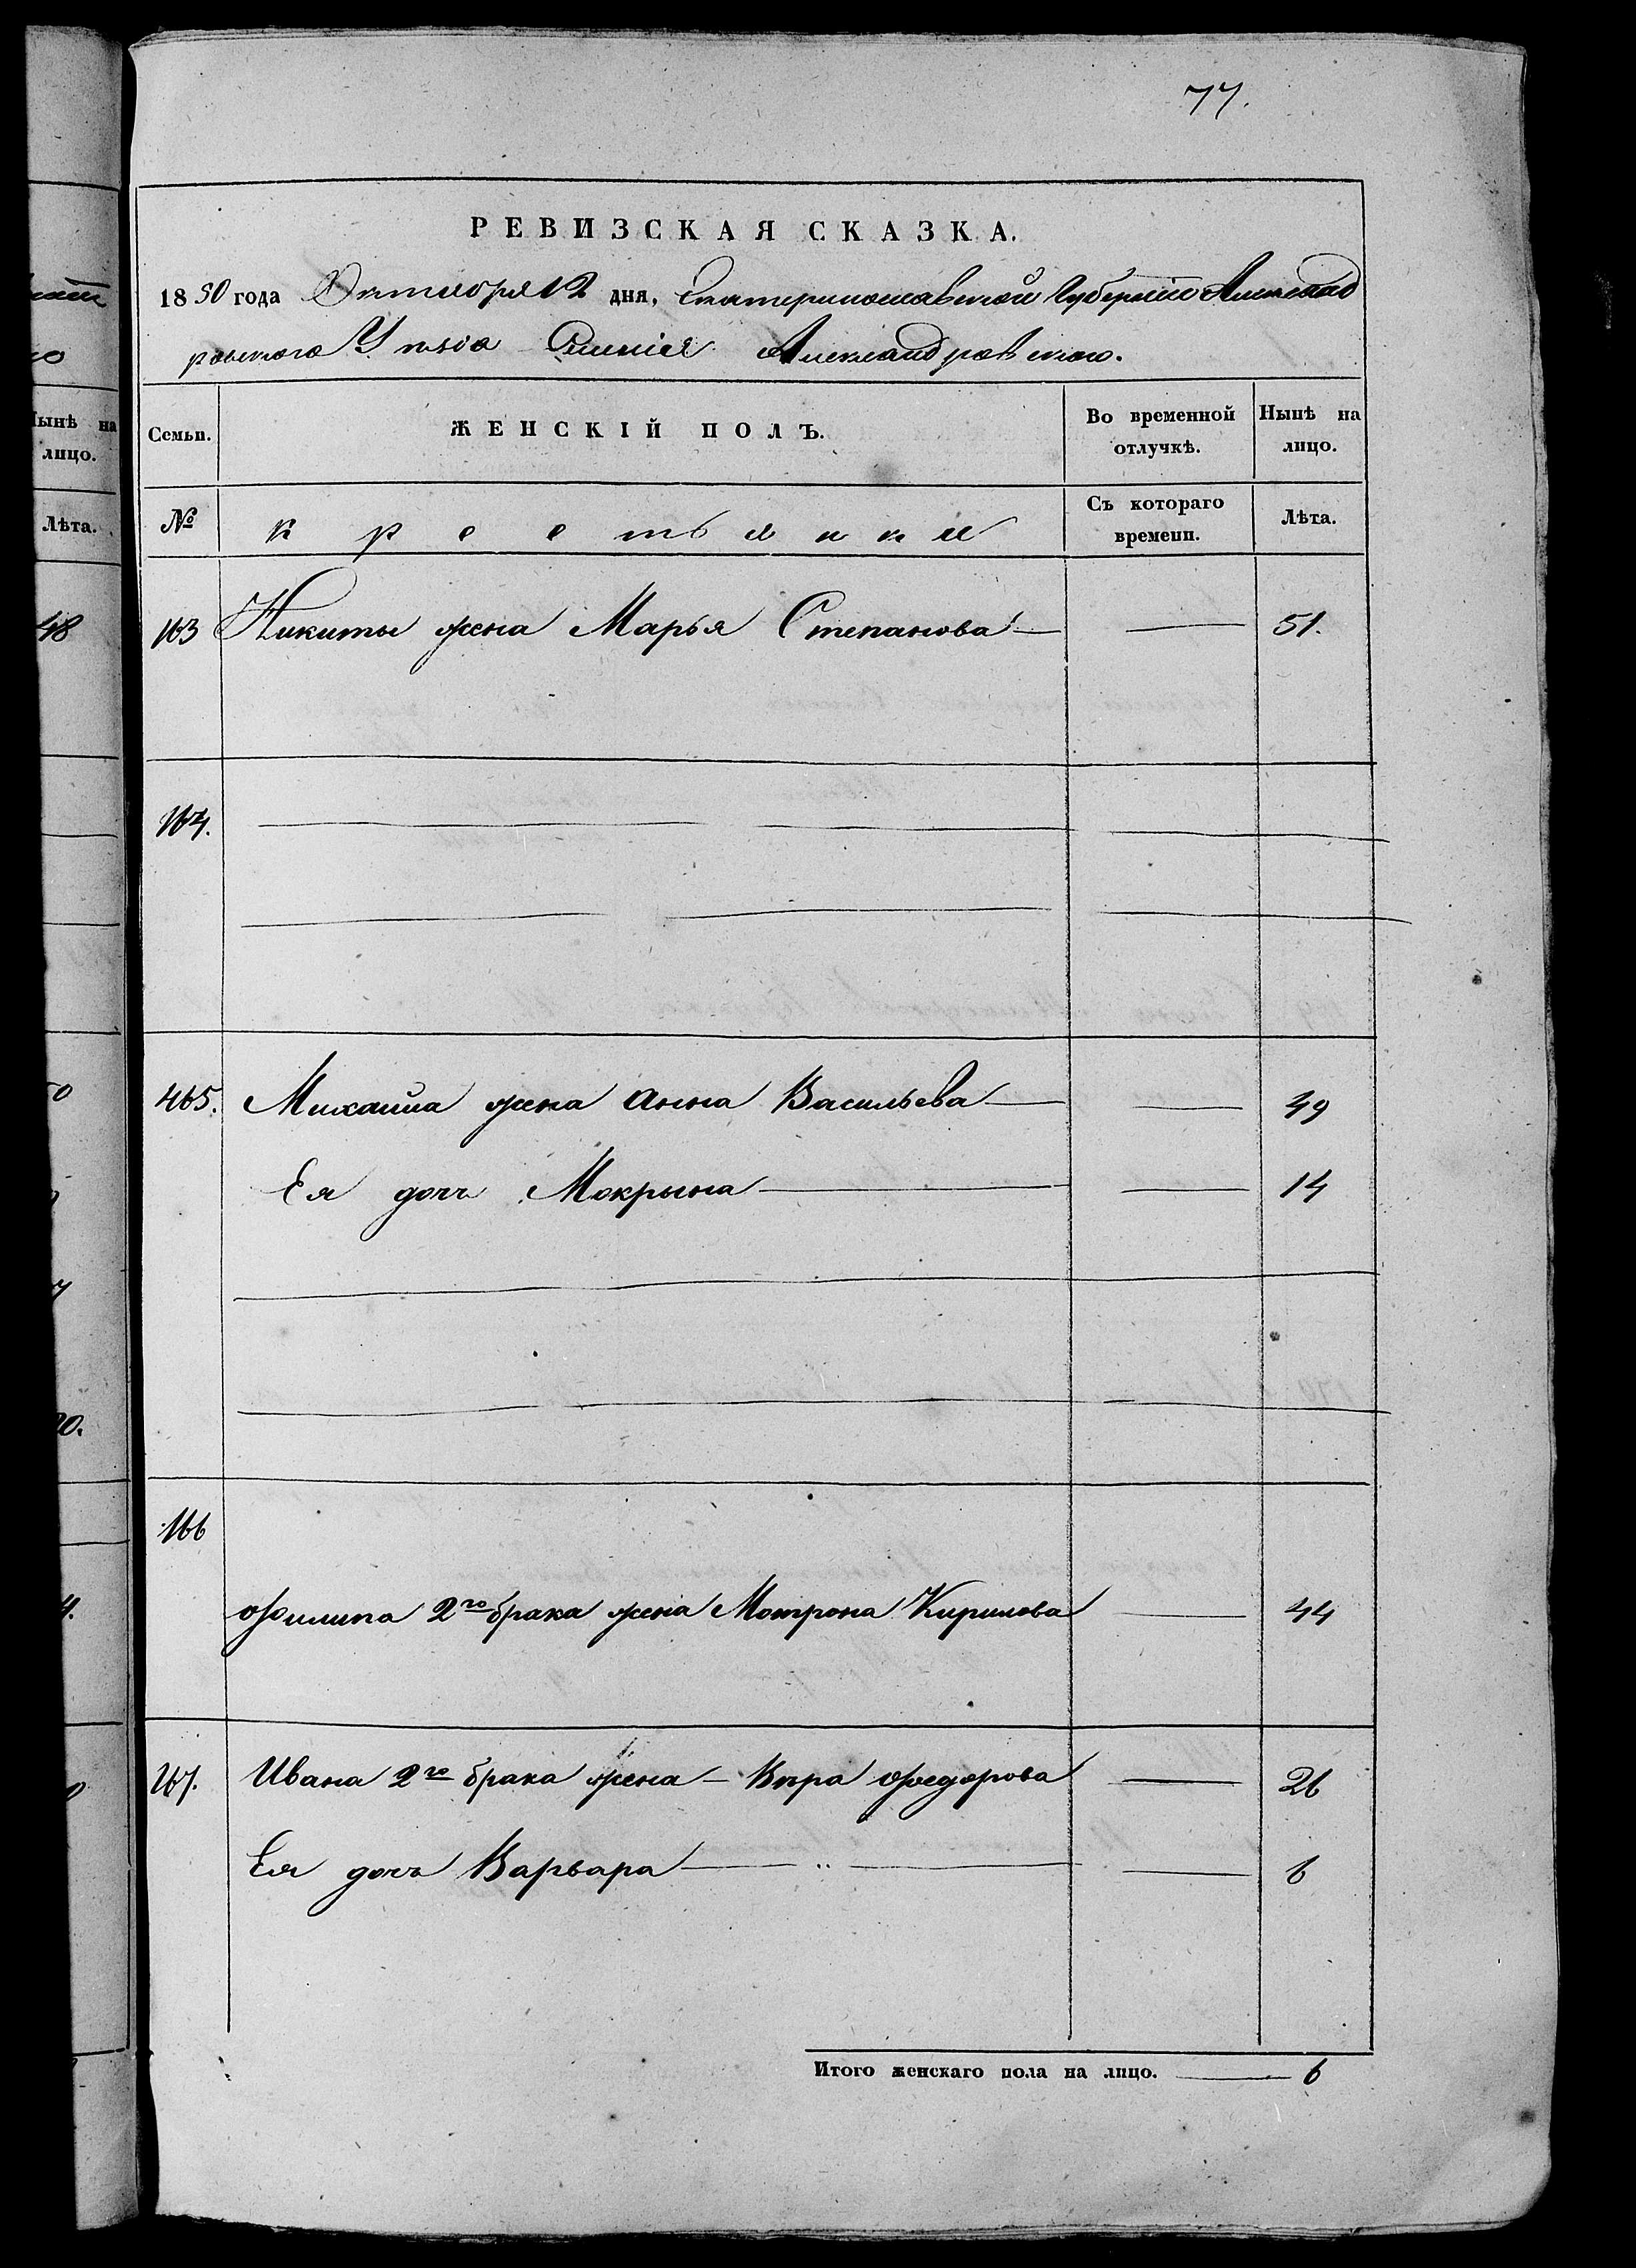 77.
РЕВИЗСКАЯ СКАЗКА.
1850 года Октября 12 дня, Екатеринославской Губерніи Александ
ровского Уѣзда Селенія Александровского.
Семьи. ЖЕНСКІЙ ПОЛЪ. Во временной отлучкѣ. Нынѣ на лицо.
№ Крестьянки Съ котораго времени. Лѣта.
163 Никиты жена Марья Степанова — — 51.
164.
165. Михайла жена Анна Васильева — — 49
Ея дочь Мокрына — — 14
166
Филипа 2го брака жена Мотрона Кирилова — 44
167. Ивана 2го брака жена — Вѣра Федорова — 26
Ея дочь Варвара — " — — 6
Итого женскаго пола на лицо. — 6
Нынѣ на
лицо.
Лѣта.
48